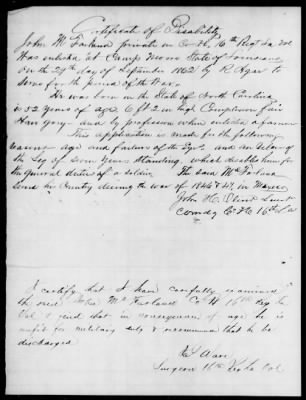 Certificate of Disability
John McFarland private in Co. H. 16th Regt La Vol
Was enlisted at Camp Moore State of Louisiana
On the 29th day of September 1862 by R Agar to
Serve for the period of the War.
He was born in the State of North Carolina
is 52 years of age 6 ft 2 in high Complexion fair
Hair gray and by profession when enlisted a farmer
This application is made for the following
reasons age and failure of the Eyes and an Ulcer of
the Leg of Seven Years standing, which disables him for
the general duties of a soldier. The said McFarland
served his Country during the war of 1846 & 47. in Mexico
John H. Lieut
Comdg Co. H. 16th La
I certify that I have carefully examined
the said John McFarland Co H 16th Reg La
Vol & find that in consequence of age he is
unfit for military duty & recommend that he be
discharged
Surgeon 16th Reg La Vol